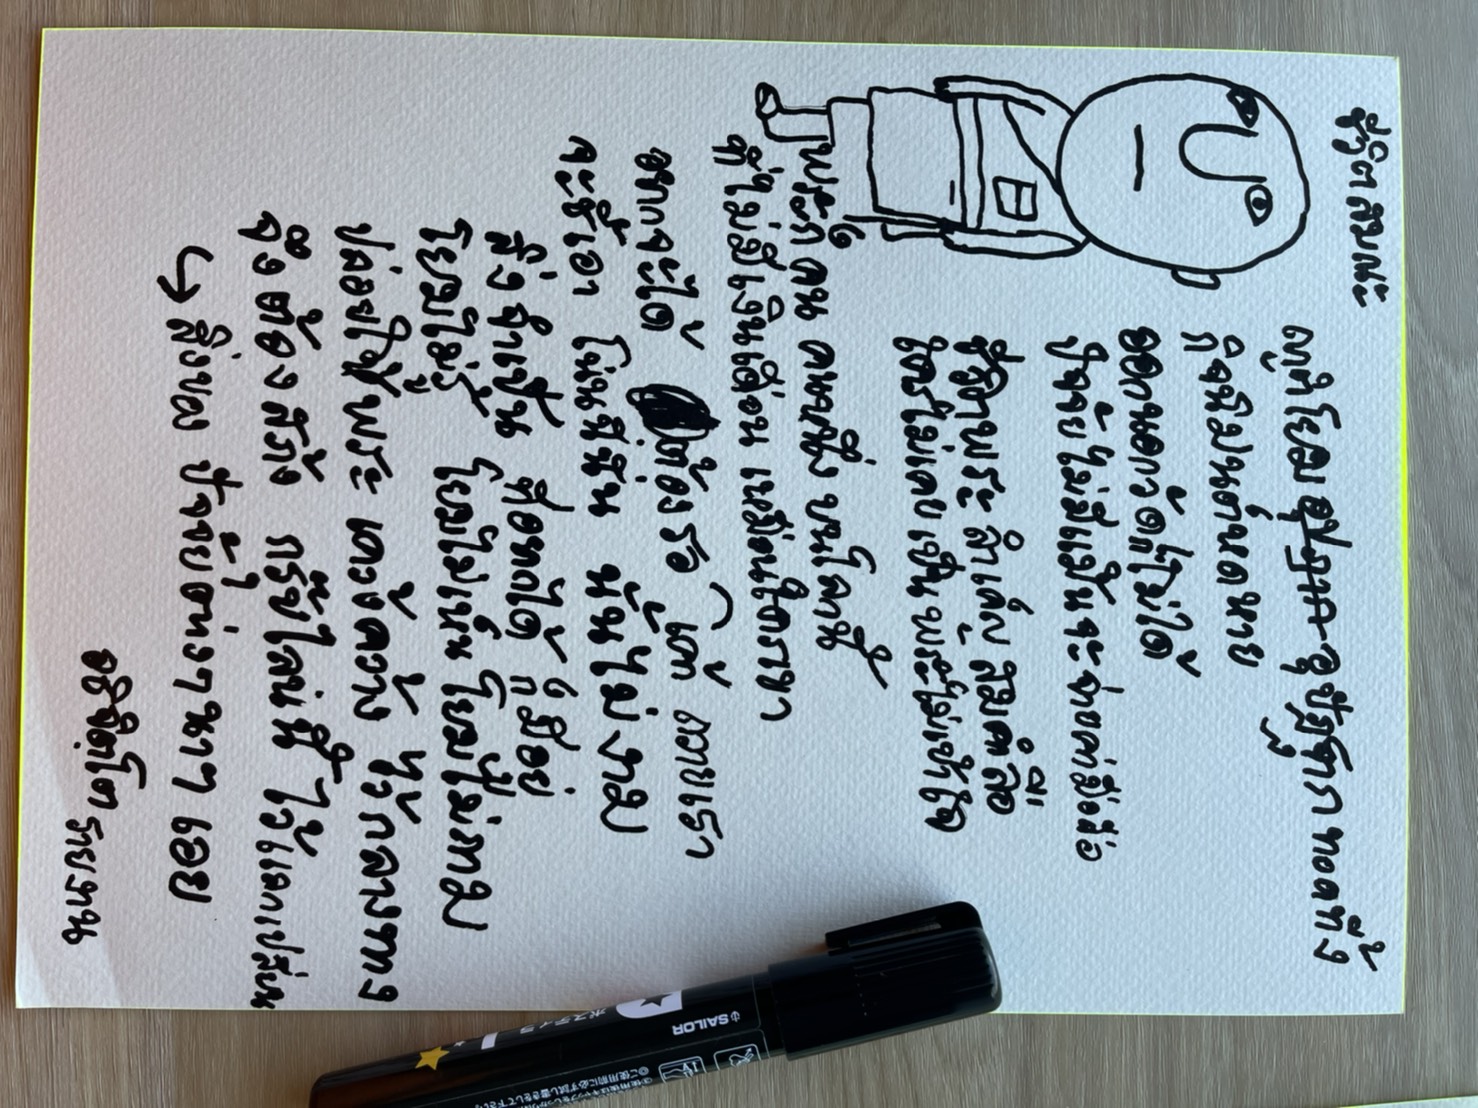 ชีวิตสมณะ
ญาติโยม อุปฐาก อุปัฏฐาก ทอดทิ้ง
กิจนิมนต์หดหาย
ออกนอกวัดก็ไม่ได้
ปัจจัยไม่มีแม้นจะจ่ายค่ามือถือ
ชีวิตพระ สำเค็ญ สมคำลือ
ใครไม่เคย เป็น พระไม่เข้าใจ
พระก็ คน คนหนึ่ง บนโลกนี้
ที่ไม่มีเงินเดือน เหมือนใครเขา
อยากจะได้ ต้องรอ เค้า ถวายเรา
จะชี้เอา โน่นนี่นั่น นั้นไม่งาม
สิ่งจำเป็น ที่อยากได้ ก็มีอยู่
โยมไม่รู้ โยมไม่เห็น โยมไม่ถาม
ปล่อยให้พระ เคว้งคว้าง ไว้กลางทาง
จึงต้องสร้าง กรุ๊ปไลน์นี้ ไว้แลกเปลี่ยน
สิ่งของ ปัจจัยต่างๆนาๆ เอย
อธิจิตฺโต รายงาน
SAILOR
ポスティコ